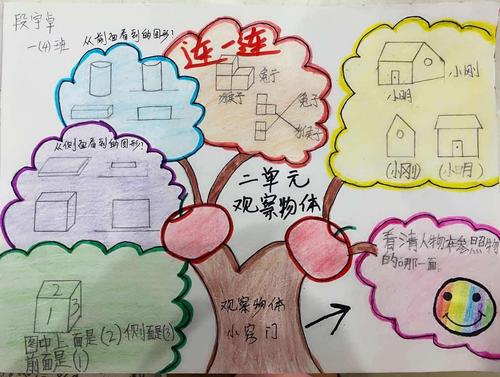 段宇卓
一(4)班
从前面看到的图形?
连一连
兔子
猴子
兔子
猴子
小刚
小明
(小刚)
(小明)
从侧面看到的图形?
二单元
观察物体
2
1
3
图中上面是(2)侧面是(3)
前面是(1)
观察物体
小窍门
看清人物在参照物
的哪一面。